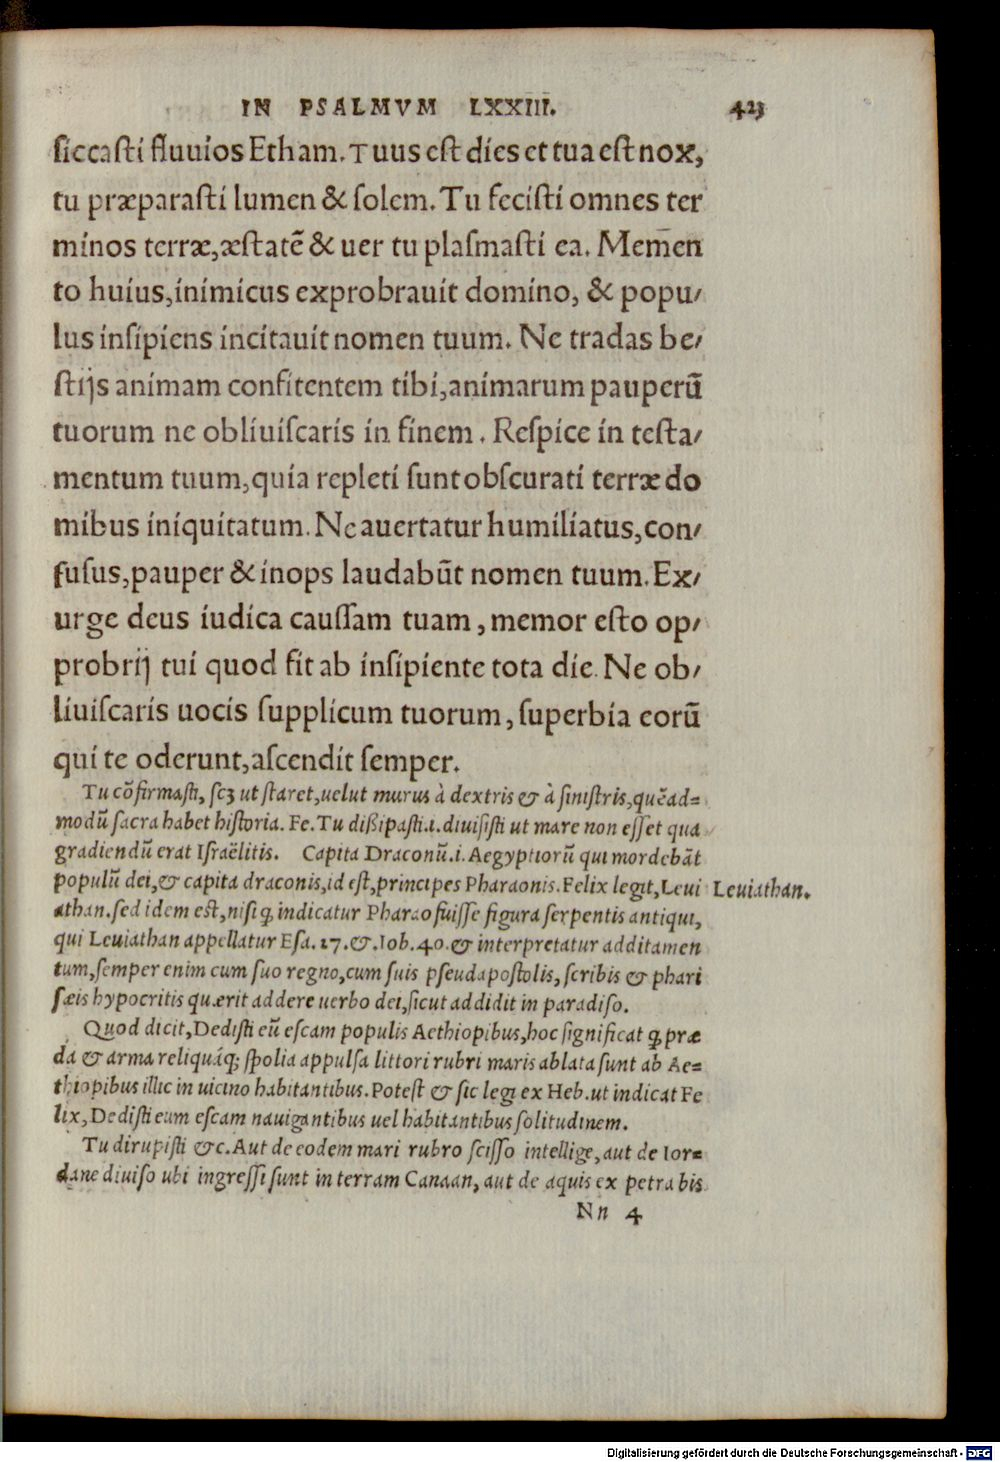 IN PSALMVM LXXIII. 423
siccasti fluuios Etham. Tuus est dies et tua est nox,
tu præparasti lumen & solem. Tu fecisti omnes ter
minos terræ, æstatē & uer tu plasmasti ea. Mem̄en
to huius, inimicus exprobrauit domino, & popu/
lus insipiens incitauit nomen tuum. Ne tradas be/
stijs animam confitentem tibi, animarum pauperū
tuorum ne obliuiscaris in finem. Respice in testa/
mentum tuum, quia repleti sunt obscurati terræ do
mibus iniquitatum. Ne auertatur humiliatus, con/
fusus, pauper & inops laudabūt nomen tuum. Ex/
urge deus iudica caussam tuam, memor esto op/
probrij tui quod fit ab insipiente tota die. Ne ob/
liuiscaris uocis supplicum tuorum, superbia eorū
qui te oderunt, ascendit semper.
Tu cōfirmasti, scꝫ ut staret, uelut murus à dextris & à sinistris, quēad=
modū sacra habet historia. Fe. Tu dißipasti .i. diuisisti ut mare non esset qua
gradiendū erat Israëlitis. Capita Draconū .i. Aegyptiorū qui mordebāt
populū dei, & capita draconis, id est, principes Pharaonis. Felix legit, Leui Leuiathan.
athan. sed idem est, nisi ꝙ indicatur Pharao fuisse figura serpentis antiqui,
qui Leuiathan appellatur Esa. 27. &. Iob. 40. & interpretatur additamen
tum, semper enim cum suo regno, cum suis pseudapostolis, scribis & phari
sæis hypocritis quærit addere uerbo dei, sicut addidit in paradiso.
Quod dicit, Dedisti eū escam populis Aethiopibus, hoc significat ꝙ præ
da & arma reliquáq; spolia appulsa littori rubri maris ablata sunt ab Ae=
thiopibus illic in uicino habitantibus. Potest & sic legi ex Heb. ut indicat Fe
lix, Dedisti eum escam nauigantibus uel habitantibus solitudinem.
Tu dirupisti &c. Aut de eodem mari rubro scisso intellige, aut de Ior=
dane diuiso ubi ingressi sunt in terram Canaan, aut de aquis ex petra bis
Nn 4
Digitalisierung gefördert durch die Deutsche Forschungsgemeinschaft - DFG